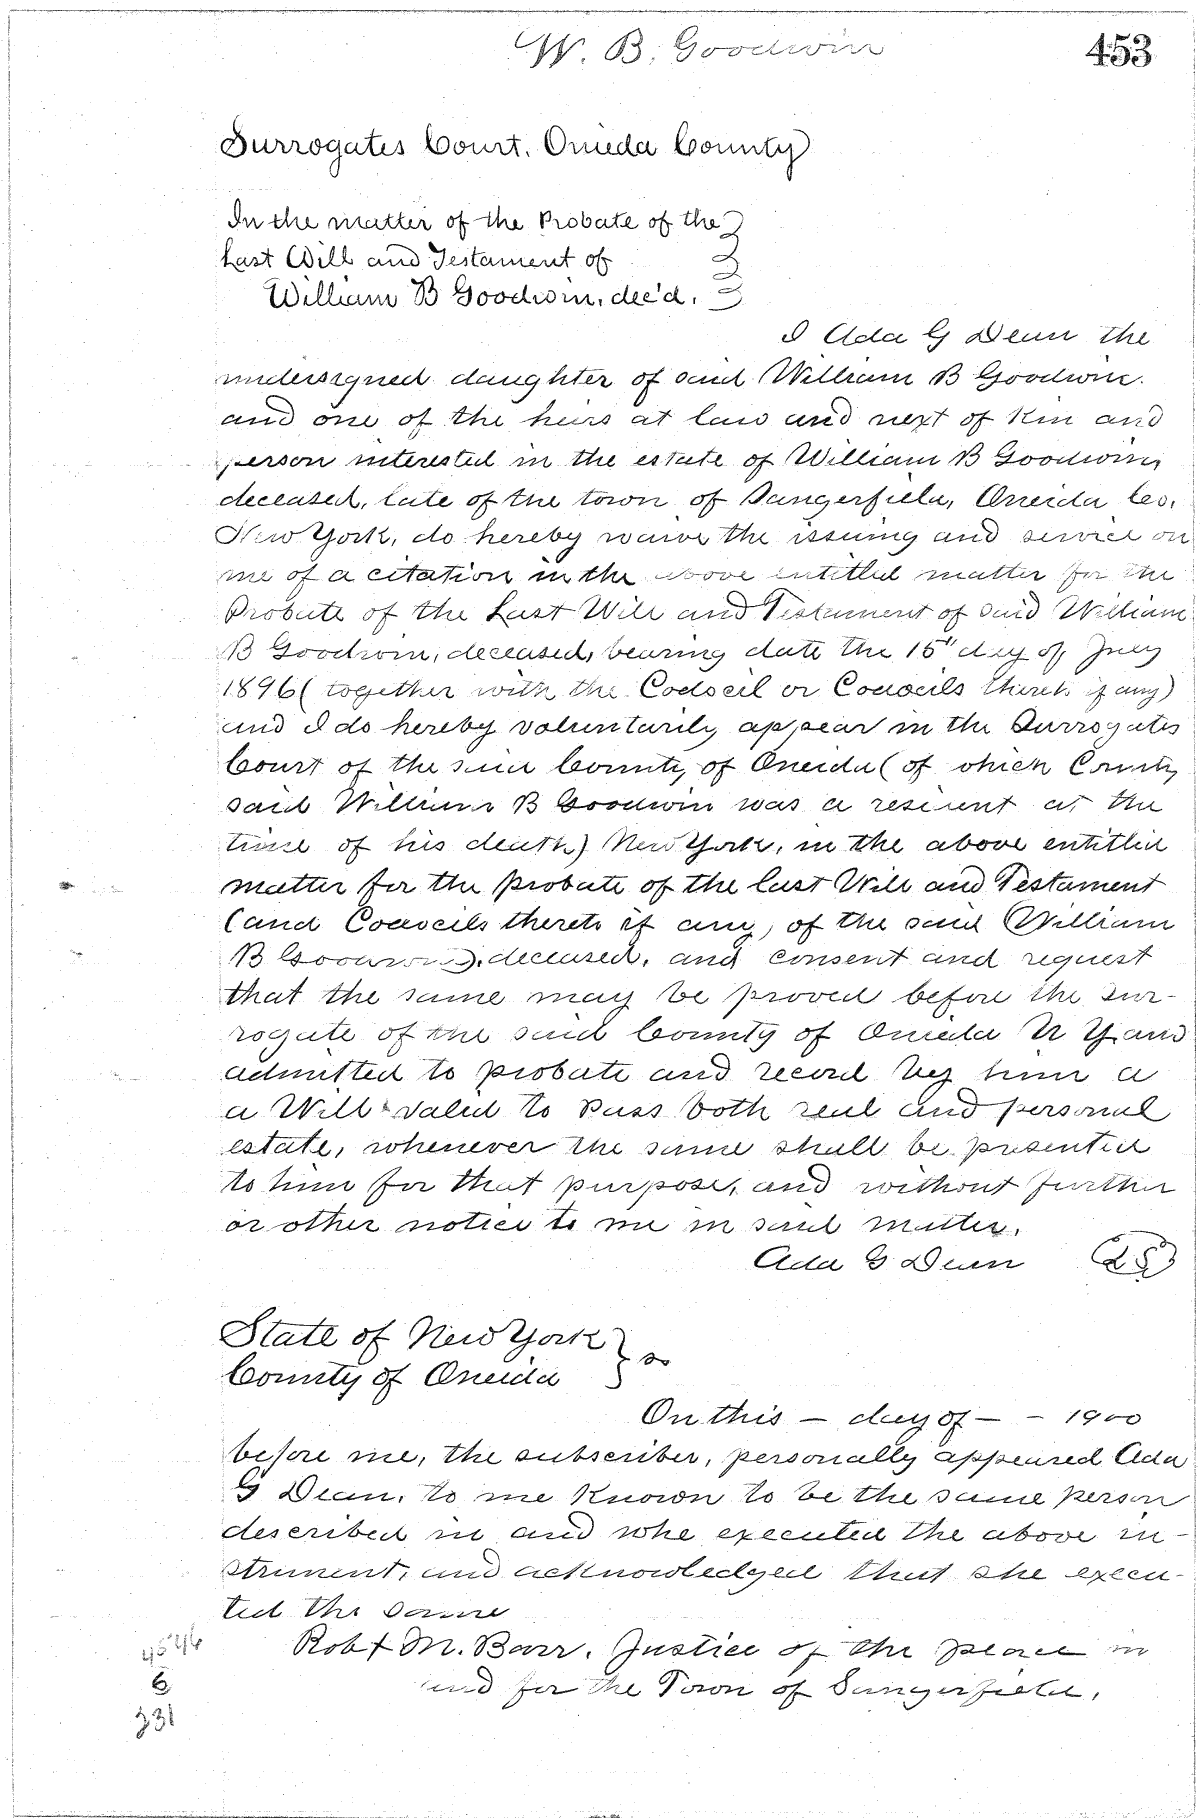 W. B. Goodwin
453
Surrogates Court. Oneida County
In the matter of the Probate of the
Last Will and Testament of
William B Goodwin. dec'd.
I Ada G Dean the
undersigned daughter of said William B Goodwin.
and one of the heirs at law and next of Kin and
person interested in the estate of William B Goodwin,
deceased, late of the town of Sangerfield, Oneida Co.
New York, do hereby waive the issuing and service on
me of a citation in the above entitled matter for the
Probate of the Last Will and Testament of said William
B Goodwin, deceased, bearing date the 15" day of
1896 (together with the Codocil or Codocils thereto if any)
and I do hereby voluntarily appear in the Surrogates
Court of the said County of Oneida (of which County
said William B Goodwin was a resident at the
time of his death) New York, in the above entitled
matter for the probate of the last Will and Testament
(and Codocils thereto if any, of the said William
B Goodwin). deceased, and consent and request
that the same may be proved before the Sur-
rogate of the said County of Oneida N Y. and
admitted to probate and record by him a
a Will valid to pass both real and personal
estate, whenever the same shall be presented
to him for that purpose, and without further
or other notice to me in said matter.
Ada G Dean (LS)
State of New York
County of Oneida } ss
On this — day of — - 1900
before me, the subscriber, personally appeared Ada
G Dean. to me known to be the same person
described in and who executed the above in-
strument, and acknowledged that she execu-
ted the same
Robt M. Barr. Justice of the peace in
and for the Town of Sangerfield.
6
331